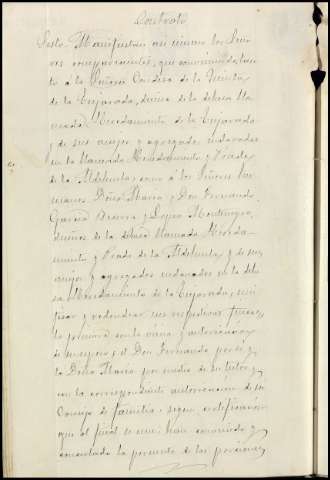 Contrato
Sesto. Manifiestan así mismo los Seño
res comparecientes, que conviniendo, tan
to á la Señora Condesa de la Quinta
de la Enjarada, dueña de la dehesa lla
mada Heredamiento de la Enjarada
y de sus anejos y agregados enclavados
en la llamada Heredamiento y Prado
de la Aldehuela, como á los Señores her
manos Doña María y Don Fernando
García Becerra y López Montenegro,
dueños de la dehesa llamada Hereda
miento y Prado de la Aldehuela y de sus
anejos y agregados enclavados en la dehe
sa Heredamiento de la Enjarada, uni
ficar y redondear sus respectivas fincas,
la primera con la venia y autorización
de su esposo y el Don Fernando por sí y
la Doña María por medio de su tutor y
con la correspondiente autorización de su
Consejo de familia, segun certificación
que al final se une; han convenido y
concertado la permuta de las porciones